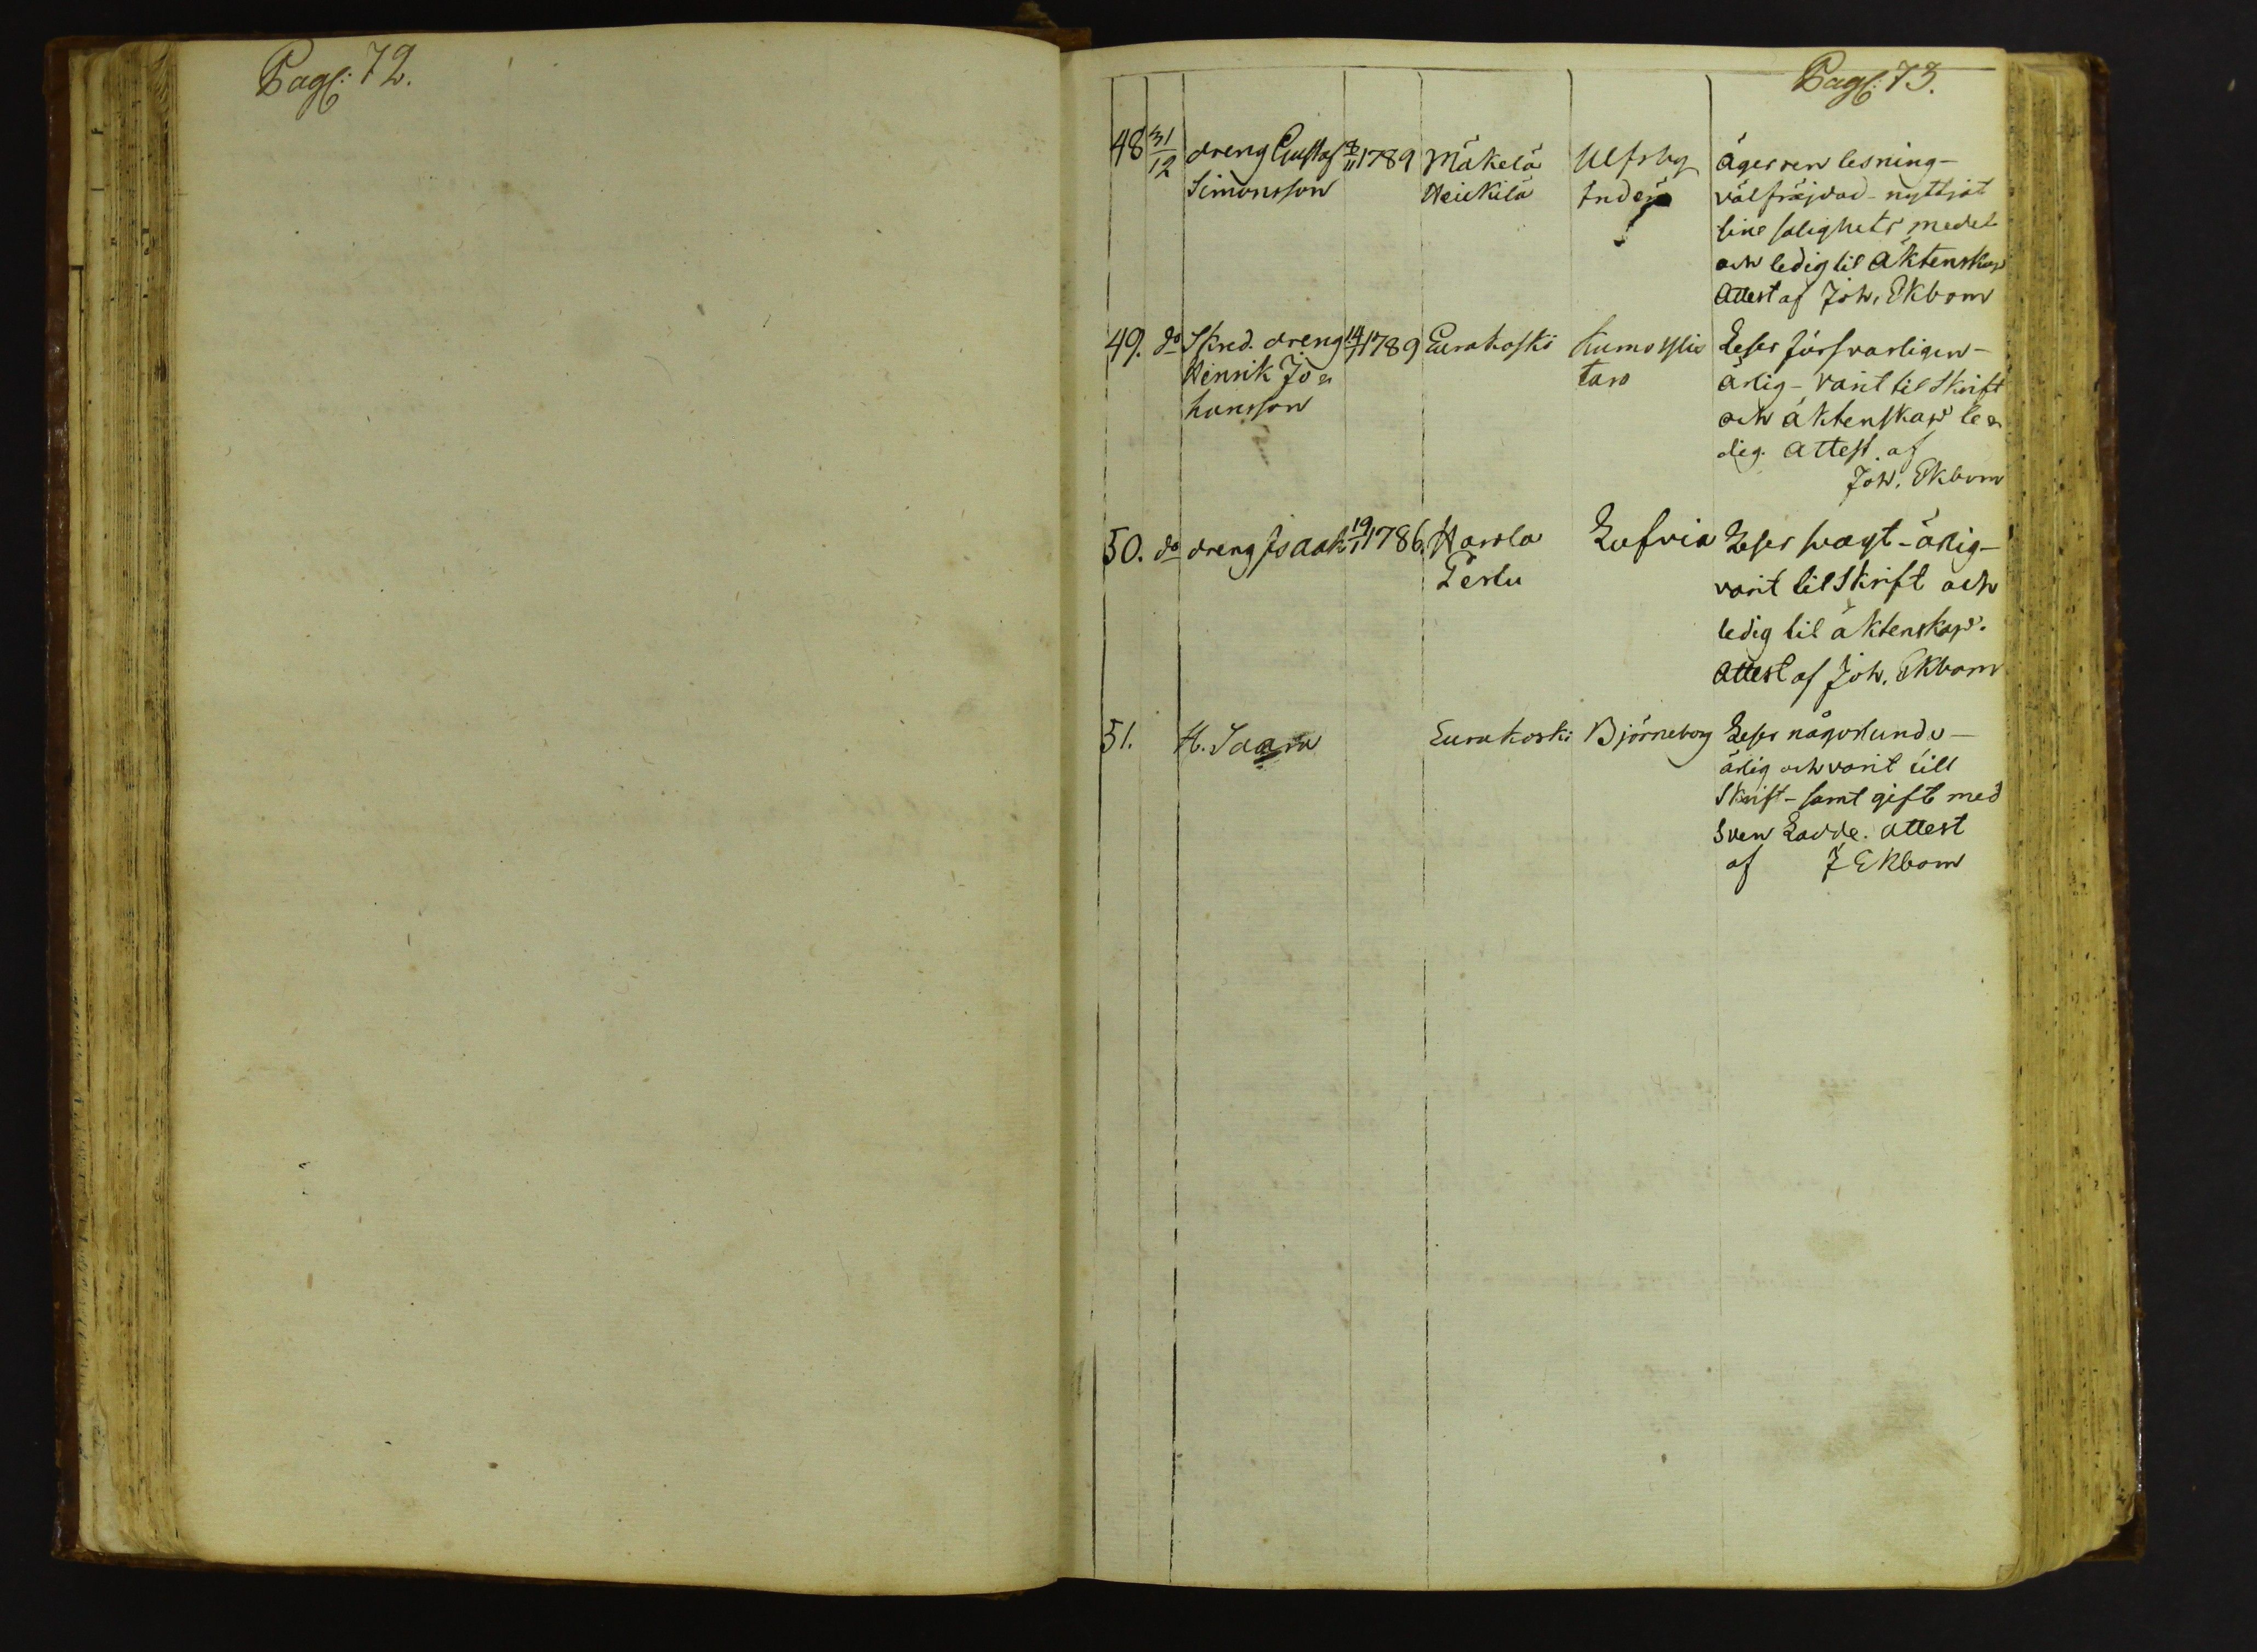 Pag: 72.
Pag: 73.
48 31/12 dreng Gustaf 8/11 1789 Mäkelä Ulfsby äger ren lesning-
Simonsson Heikkilä Inderö välfräjdad - nyttjat
sine salighets medel
och ledig til äktenskap
Attest af Joh. Ekbom
49. do Skred. dreng 14/1 1789 Eurakoski Kumo Ylis Leser försvarligen-
Henrik Jo= taro ärlig - varit til Skrift
hansson och äktenskap le=
dig. Attest af
Joh. Ekbom
50. do dreng Isaak 19/1 1786. Harola Lufvia Leser svagt - ärlig-
Perlu varit til Skrift och
ledig til äktenskap.
Attest af Joh. Ekbom
51. H. Saara Eurakoski Björneborg Leser någorlunda-
ärlig och varit till
Skrift - samt gift med
Sven Ladde. attest
af J Ekbom